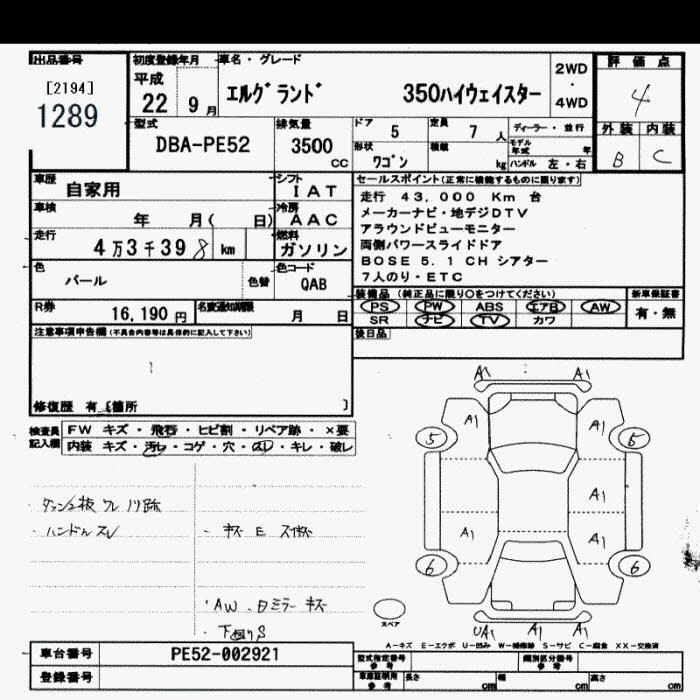 出品番号
[2194]
1289
初度登録年月
平成
22 9月
車名・グレード
エルグランド 350ハイウェイスター
2WD
・
4WD
評価点
4
外装 内装
B C
型式
DBA-PE52
排気量
3500
CC
ドア 5
定員 7人
形状 ワゴン
積載 kg
ディーラー・並行
モデル年式 年
ハンドル 左・右
車歴
自家用
シフト
IAT
車検
年 月( 日)
冷房
AAC
走行
4万3千398 km
燃料
ガソリン
色
パール
色替
色コード
QAB
R券
16,190円
名変通知期限
月 日
セールスポイント(正常に機能するものに限ります)
走行 43,000 Km 台
メーカーナビ・地デジDTV
アラウンドビューモニター
両側パワースライドドア
BOSE 5.1 CH シアター
7人のり・ETC
装備品(純正品に限り○をつけてください)
新車保証書
PS PW ABS エアB AW
有・無
SR ナビ TV カワ
後日品
注意事項申告欄(不具合内容等は具体的に記入して下さい)
修復歴 有〔箇所 〕
検査員
記入欄
FW キズ・飛石・ヒビ割・リペア跡・×要
内装 キズ・汚レ・コゲ・穴・スレ・キレ・破レ
ハンドルスレ
AW
A1 A1
A1 A1
5 6
A1
A1 A1
6 6
UA1 A1 A1
スペア
A-キズ E-エクボ U-凹み W-補修跡 S-サビ C-腐食 XX-交換済
車台番号
PE52-002921
登録番号
型式指定番号
参考
類別区分番号
参考
車庫証明用
参考
長さ cm
幅 cm
高さ cm